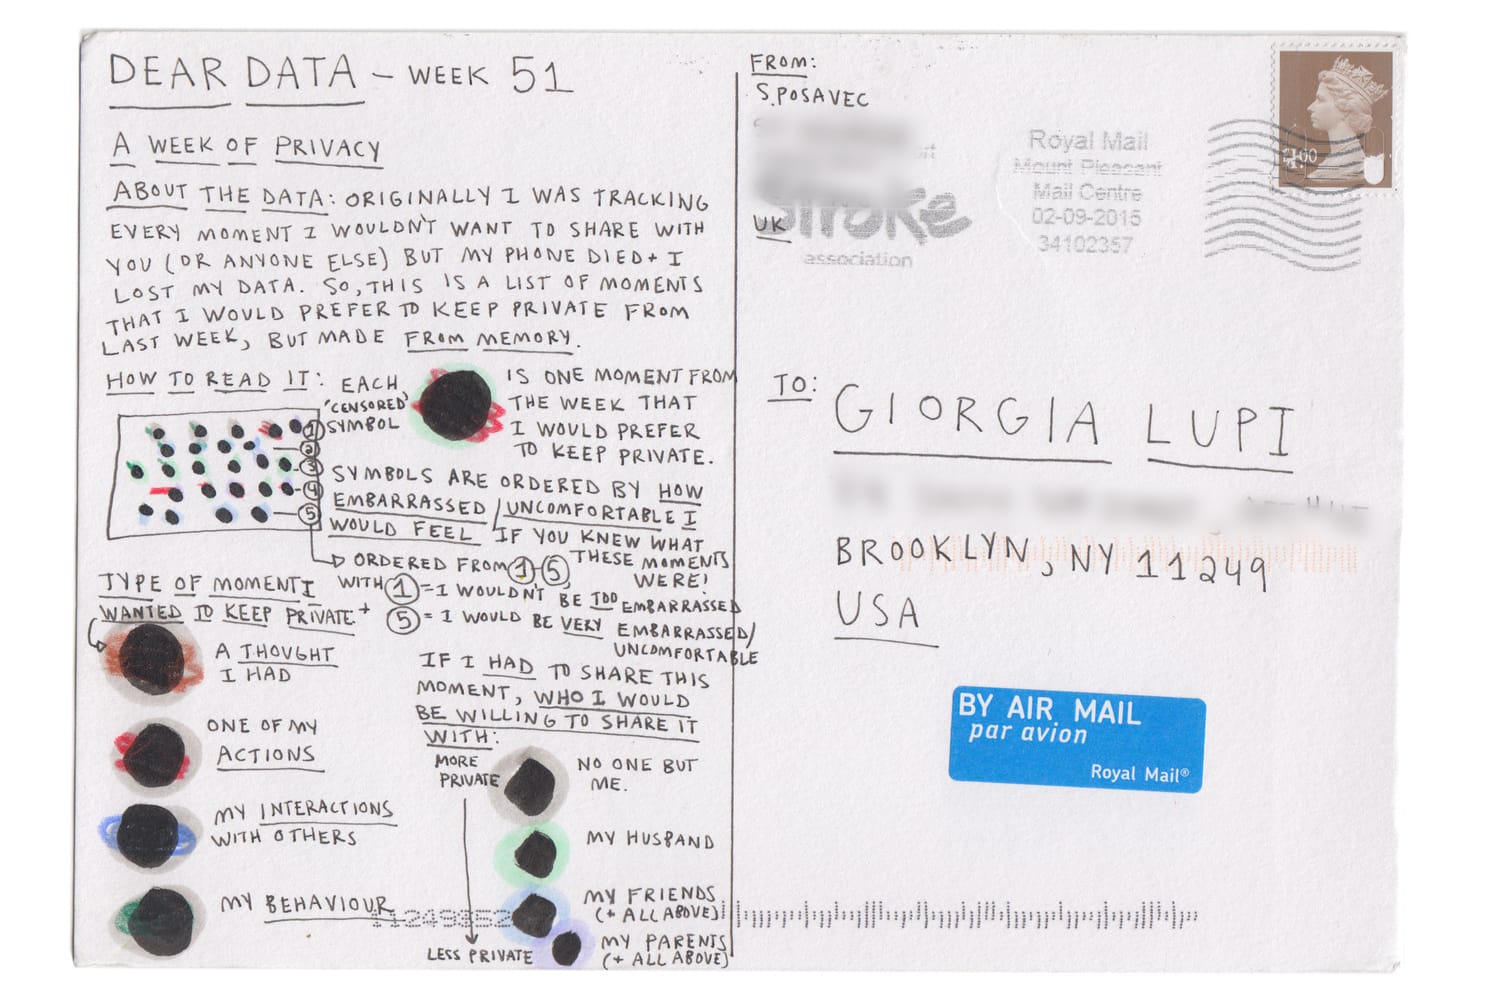 DEAR DATA – WEEK 51
A WEEK OF PRIVACY
ABOUT THE DATA: ORIGINALLY I WAS TRACKING
EVERY MOMENT I WOULDN'T WANT TO SHARE WITH
YOU (OR ANYONE ELSE) BUT MY PHONE DIED + I
LOST MY DATA. SO, THIS IS A LIST OF MOMENTS
THAT I WOULD PREFER TO KEEP PRIVATE FROM
LAST WEEK, BUT MADE FROM MEMORY.
HOW TO READ IT: EACH
'CENSORED'
SYMBOL
IS ONE MOMENT FROM
THE WEEK THAT
I WOULD PREFER
TO KEEP PRIVATE.
1
2
3
4
5
SYMBOLS ARE ORDERED BY HOW
EMBARRASSED/UNCOMFORTABLE I
WOULD FEEL IF YOU KNEW WHAT
THESE MOMENTS
WERE!
ORDERED FROM 1-5
WITH 1 = I WOULDN'T BE TOO EMBARRASSED
5 = I WOULD BE VERY EMBARRASSED/
UNCOMFORTABLE
TYPE OF MOMENT I
WANTED TO KEEP PRIVATE +
A THOUGHT
I HAD
ONE OF MY
ACTIONS
MY INTERACTIONS
WITH OTHERS
MY BEHAVIOUR
IF I HAD TO SHARE THIS
MOMENT, WHO I WOULD
BE WILLING TO SHARE IT
WITH:
MORE
PRIVATE
NO ONE BUT
ME.
MY HUSBAND
MY FRIENDS
(+ ALL ABOVE)
MY PARENTS
(+ ALL ABOVE)
LESS PRIVATE
FROM:
S.POSAVEC
UK
association
Royal Mail
Mount Pleasant
Mail Centre
02-09-2015
34102357
£1.00
TO:
GIORGIA LUPI
BROOKLYN, NY 11249
USA
BY AIR MAIL
par avion
Royal Mail®